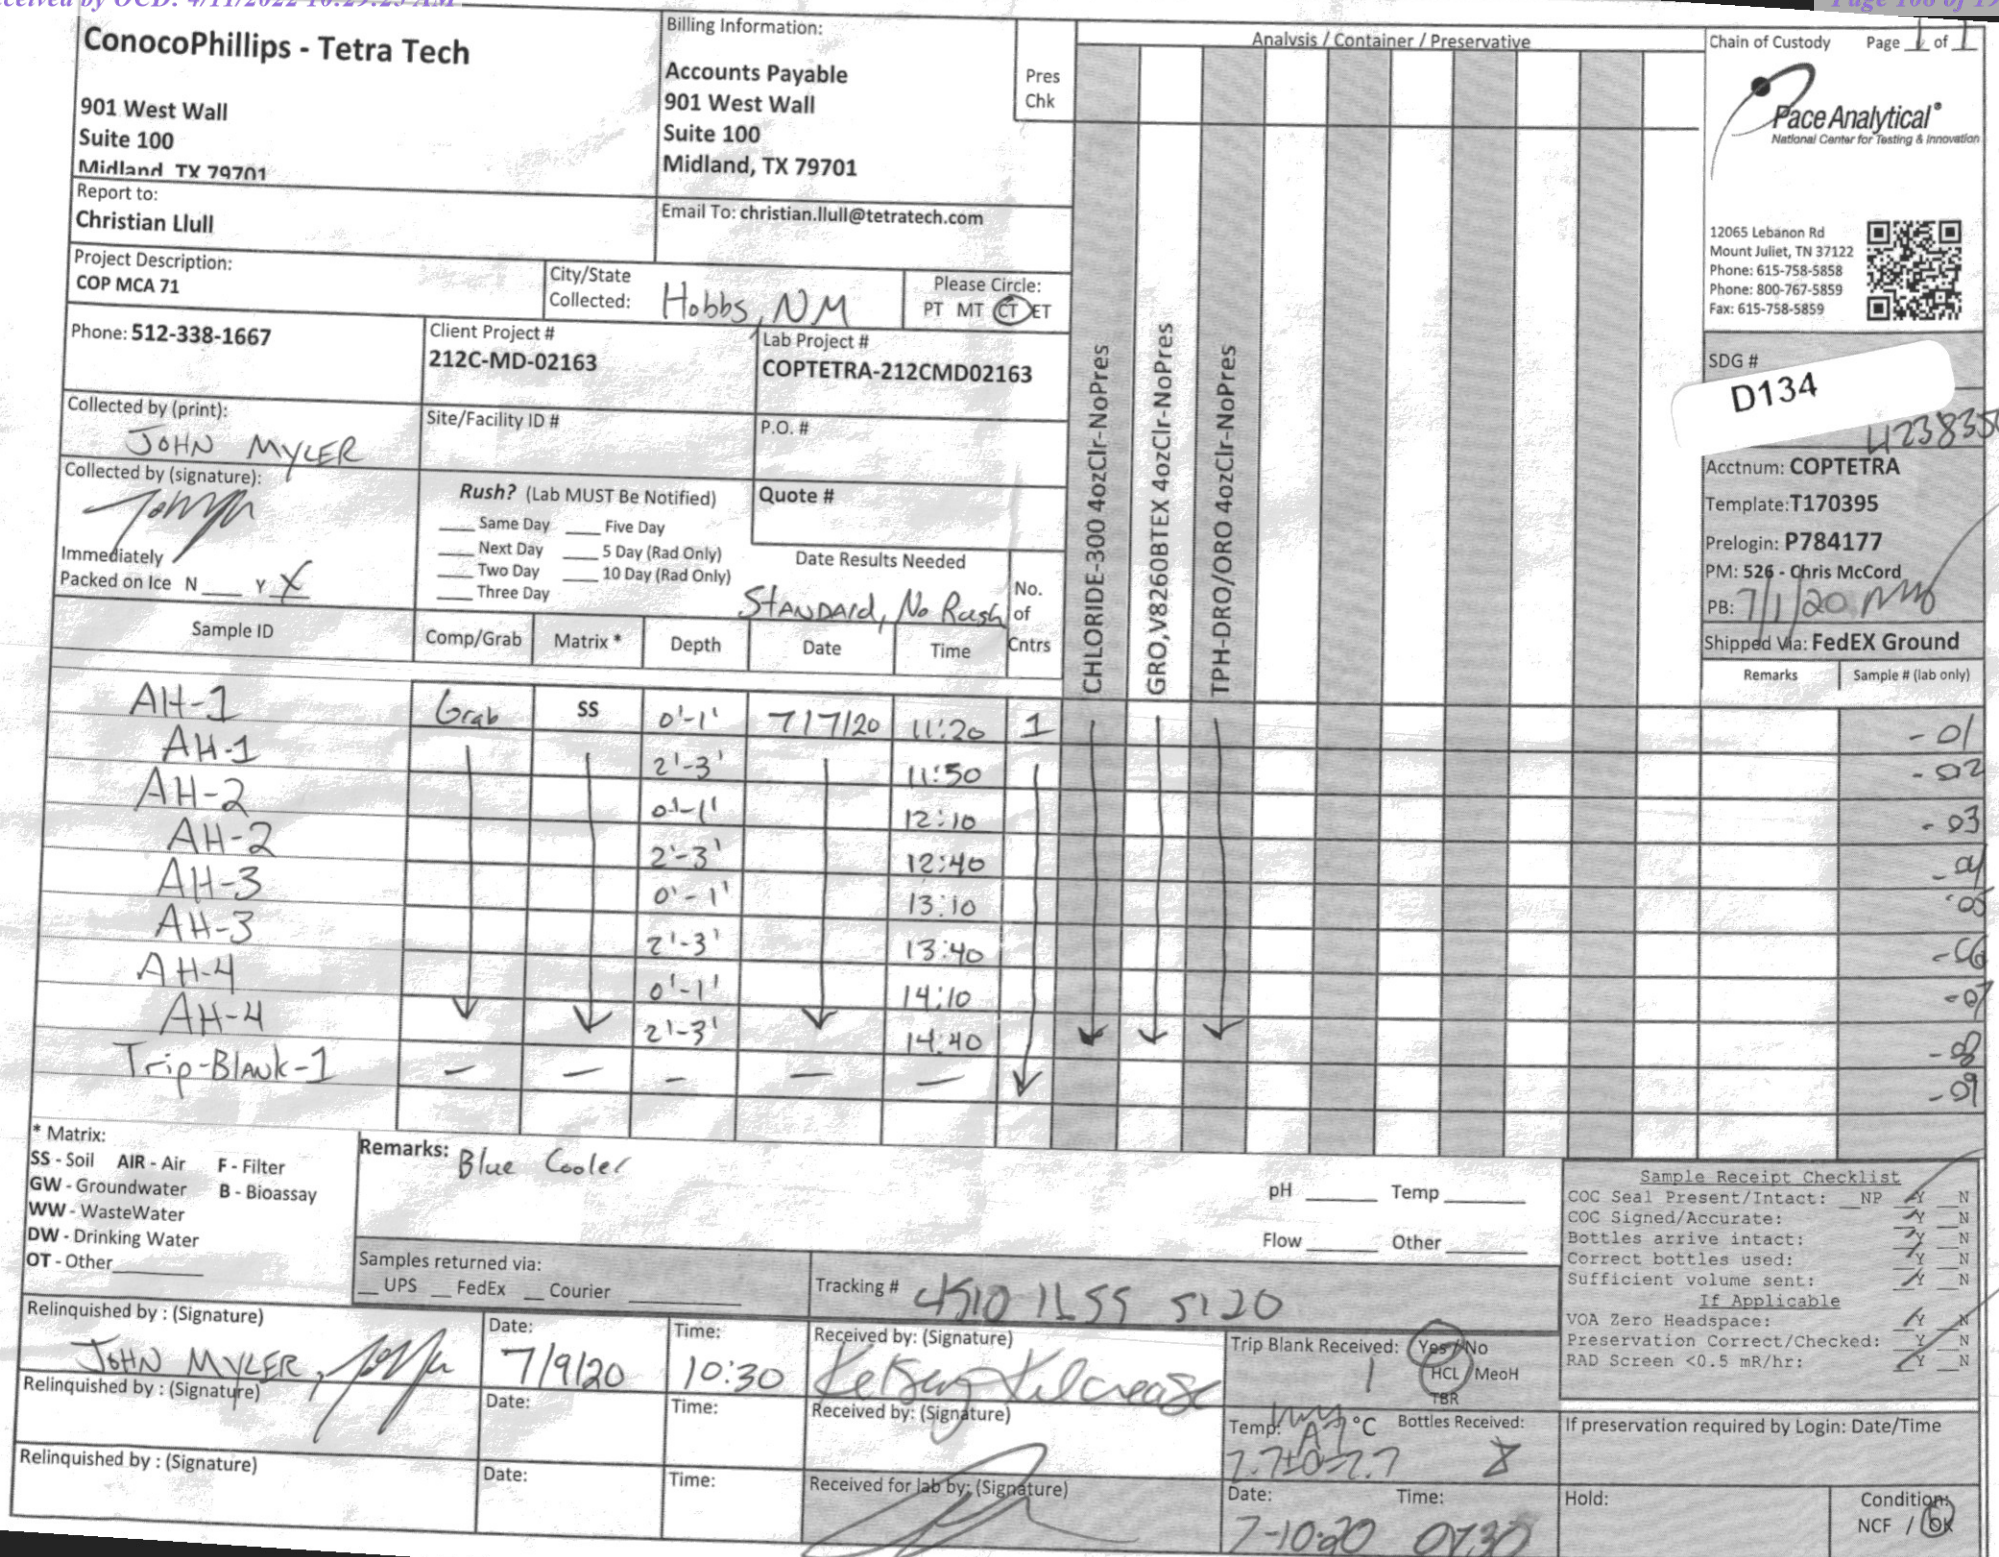 ceived by OCD: 4/11/2022 10:29:25 AM
Page 108 of 19
ConocoPhillips - Tetra Tech
901 West Wall
Suite 100
Midland TX 79701
Billing Information:
Accounts Payable
901 West Wall
Suite 100
Midland, TX 79701
Pres
Chk
Analysis / Container / Preservative
Chain of Custody Page 1 of 1
Pace Analytical®
National Center for Testing & Innovation
12065 Lebanon Rd
Mount Juliet, TN 37122
Phone: 615-758-5858
Phone: 800-767-5859
Fax: 615-758-5859
Report to:
Christian Llull
Email To: christian.llull@tetratech.com
Project Description:
COP MCA 71
City/State
Collected: Hobbs, NM
Please Circle:
PT MT CT ET
Phone: 512-338-1667
Client Project #
212C-MD-02163
Lab Project #
COPTETRA-212CMD02163
Collected by (print):
JOHN MYLER
Site/Facility ID #
P.O. #
Collected by (signature):
Immediately
Packed on Ice N ___ Y X
Rush? (Lab MUST Be Notified)
___ Same Day ___ Five Day
___ Next Day ___ 5 Day (Rad Only)
___ Two Day ___ 10 Day (Rad Only)
___ Three Day
Quote #
Date Results Needed
STANDARD, No Rush
No.
of
Cntrs
CHLORIDE-300 4ozClr-NoPres
GRO,V8260BTEX 4ozClr-NoPres
TPH-DRO/ORO 4ozClr-NoPres
SDG #
D134
Acctnum: COPTETRA
Template: T170395
Prelogin: P784177
PM: 526 - Chris McCord
PB: 7/1/20
Shipped Via: FedEX Ground
Remarks Sample # (lab only)
Sample ID Comp/Grab Matrix * Depth Date Time
AH-1 Grab SS 0'-1' 7/7/20 11:20 1 -01
AH-1 2'-3' 11:50 -02
AH-2 0'-1' 12:10 -03
AH-2 2'-3' 12:40 -04
AH-3 0'-1' 13:10 -05
AH-3 2'-3' 13:40 -06
AH-4 0'-1' 14:10 -07
AH-4 2'-3' 14:40 -08
Trip-Blank-1 — — — — — -09
* Matrix:
SS - Soil AIR - Air F - Filter
GW - Groundwater B - Bioassay
WW - WasteWater
DW - Drinking Water
OT - Other
Remarks: Blue Cooler
pH ___ Temp ___
Flow ___ Other ___
Samples returned via:
__ UPS __ FedEx __ Courier
Tracking # 4510 1155 5120
Sample Receipt Checklist
COC Seal Present/Intact: __NP Y __N
COC Signed/Accurate: Y __N
Bottles arrive intact: Y __N
Correct bottles used: Y __N
Sufficient volume sent: Y __N
If Applicable
VOA Zero Headspace: Y __N
Preservation Correct/Checked: Y __N
RAD Screen <0.5 mR/hr: Y __N
Relinquished by : (Signature)
JOHN MYLER,
Date:
7/9/20
Time:
10:30
Received by: (Signature)
Kelsey Kilcrease
Trip Blank Received: Yes / No
1 HCL / MeoH
TBR
Relinquished by : (Signature)
Date:
Time:
Received by: (Signature)
Temp: °C Bottles Received:
8
If preservation required by Login: Date/Time
Relinquished by : (Signature)
Date:
Time:
Received for lab by: (Signature)
Date:
7-10-20
Time:
0730
Hold:
Condition:
NCF / OK